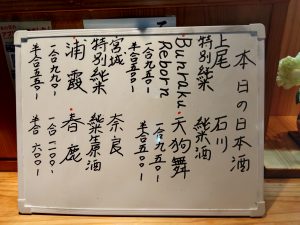 本日の日本酒
上尾
特別純米
Bunraku
Reborn
一合九五〇-
半合五〇〇-
石川
純米酒
天狗舞
一合九五〇-
半合五〇〇-
宮城
特別純米
浦霞
一合九九〇-
半合五五〇-
奈良
純米原酒
春鹿
一合一一〇〇-
半合六〇〇-